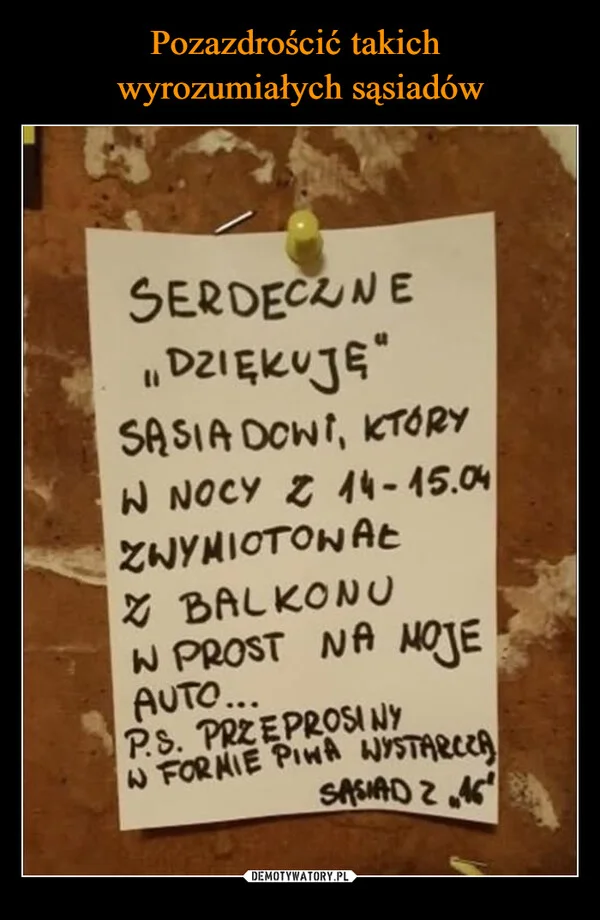 Pozazdrościć takich
wyrozumiałych sąsiadów
SERDECZNE
„DZIĘKUJĘ"
SĄSIADOWI, KTÓRY
W NOCY Z 14-15.04
ZWYMIOTOWAŁ
Z BALKONU
W PROST NA MOJE
AUTO...
P.S. PRZEPROSINY
W FORMIE PIWA WYSTARCZĄ
SĄSIAD Z „16"
DEMOTYWATORY.PL